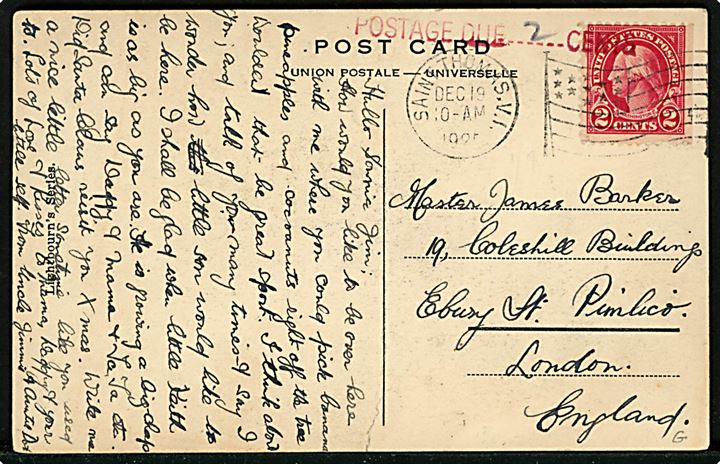 POSTAGE DUE 2 CENTS
POST CARD
UNION POSTALE UNIVERSELLE
SAINT THOMAS, V.I.
DEC 19
10-AM
UNITED STATES POSTAGE
2 CENTS 2
Hullo Sonnie Jim;
How would you like to be over here
with me where you could pick banana
pineapples and cocoanuts right off the tree
Wouldnt that be great sport. I think about
you, and talk of you many times & say I
wonder how little son would like to
be here. I shall be glad when little Keith
is as big as you are. He is growing a big chap
and can say Daddy & Mama & Ta Ta etc.
Did Santa Claus visit you Xmas. Write me
a nice little letter sometime like you used
to. Lots of Love & Kisses to Mama, Daddy & your
little self from Uncle Jimmie & Auntie
Lightbourn's Series
Master James Barker
19, Coleshill Buildings
Ebury St. Pimlico.
London.
England.
G